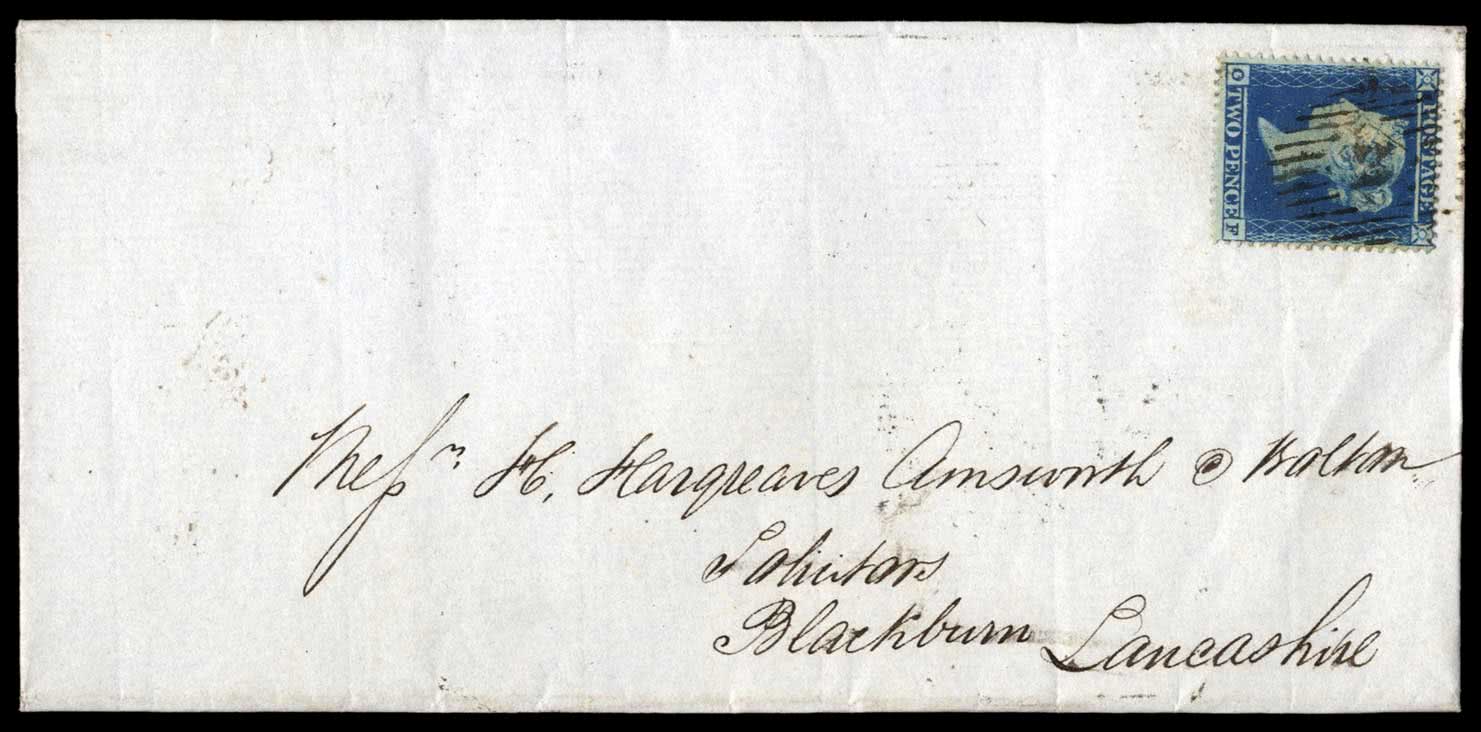 POSTAGE
TWO PENCE
O F
Messrs. H. Hargreaves Ainsworth & Bolton
Solicitors
Blackburn Lancashire